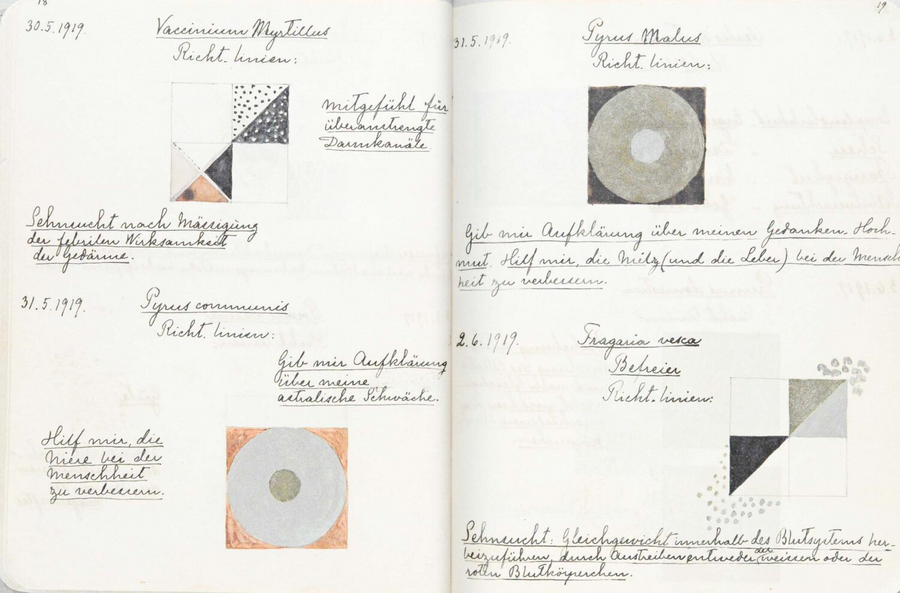 18
30.5.1919.
Vaccinium Myrtillus
Richt. linien:
Mitgefühl für
überanstrengte
Darmkanäle
Sehnsucht nach Mässigung
der febrilen Wirksamkeit
der Gedärme.
31.5.1919.
Pyrus communis
Richt. linien:
Gib mir Aufklärung
über meine
astralische Schwäche.
Hilf mir, die
Niere bei der
Menschheit
zu verbessern.
19
31.5.1919.
Pyrus Malus
Richt. linien:
Gib mir Aufklärung über meinen Gedanken. Hoch-
mut. Hilf mir, die Milz (und die Leber) bei der Mensch
heit zu verbessern.
2.6.1919.
Fragaria vesca
Befreier
Richt. linien:
Sehnsucht: Gleichgewicht innerhalb des Blutsystems her-
beizuführen, durch Austreiben entweder der weissen oder der
roten Blutkörperchen.